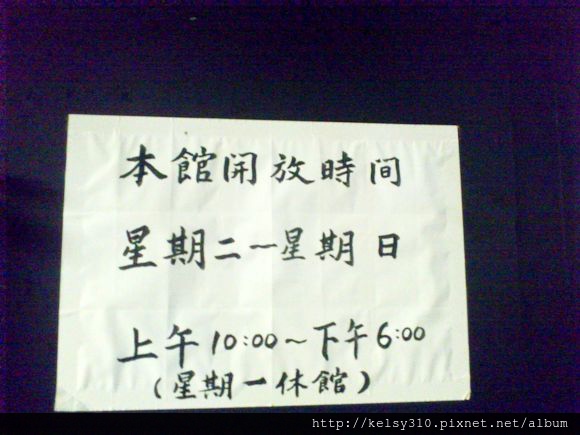 本館開放時間
星期二~星期日
上午10:00~下午6:00
(星期一休館)
http://kelsy310.pixnet.net/album